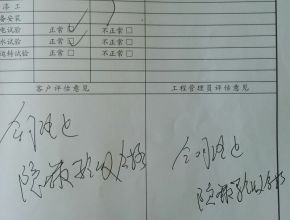 漆 工
备安装
电试验 正常☑ 不正常□
水试验 正常☑ 不正常□
运转试验 正常□ 不正常□
客户评估意见 工程管理员评估意见
隐蔽验收合格
隐蔽验收合格